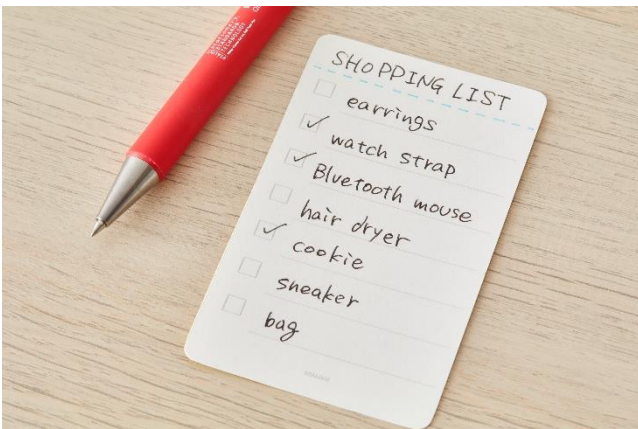 SHOPPING LIST
earrings
watch strap
Bluetooth mouse
hair dryer
cookie
sneaker
bag